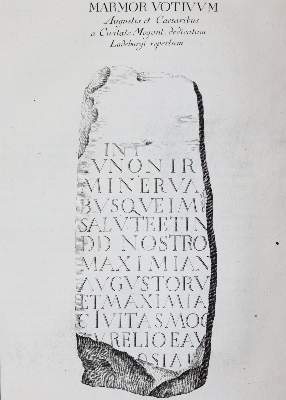 MARMOR VOTIVUM
Augustis et Caesaribus
a Civitate Mogont. dedicatum
Ladeburgi repertum
IN I
VNONI R
MINERVA
BVSQVE IM
SALVTE ET IN
DD NOSTRO
MAXIMIAN
AVGVSTORV
ET MAXIMIA
CIVITAS MOG
VRELIO EA
OSIA